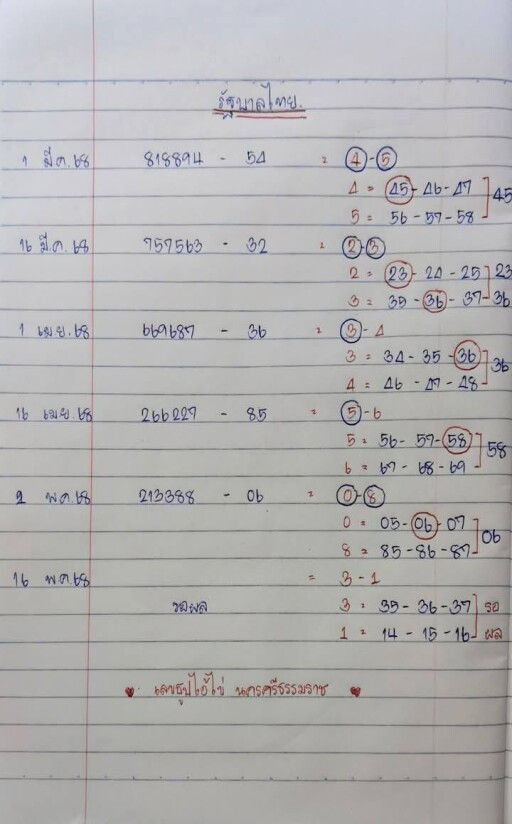 รัฐบาลไทย.
1 มี.ค.68 818894 - 54 = 4-5
4 = 45-46-47
45
5 = 56-57-58
16 มี.ค.68 757563 - 32 = 2-3
2 = 23-24-25 23
3 = 35-36-37 36
1 เม.ย.68 669687 - 36 = 3-4
3 = 34-35-36
36
4 = 46-47-48
16 เม.ย.68 266227 - 85 = 5-6
5 = 56-57-58
58
6 = 67-68-69
2 พ.ค.68 213388 - 06 = 0-8
0 = 05-06-07
06
8 = 85-86-87
16 พ.ค.68 = 3-1
รอผล 3 = 35-36-37 รอ
1 = 14-15-16 ผล
เลขธูปไอ้ไข่ นครศรีธรรมราช